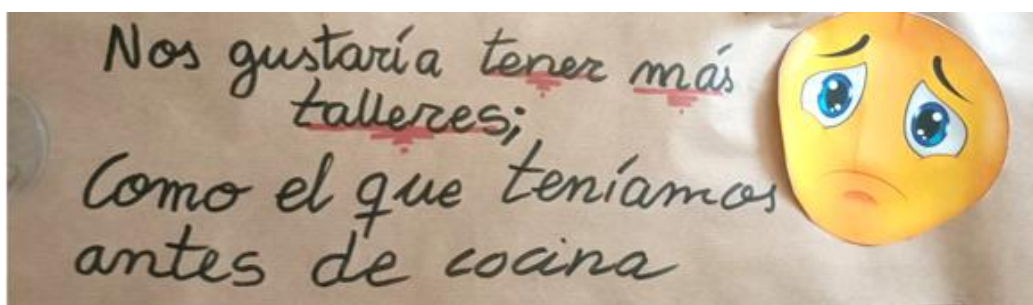 Nos gustaría tener más
talleres;
Como el que teníamos
antes de cocina